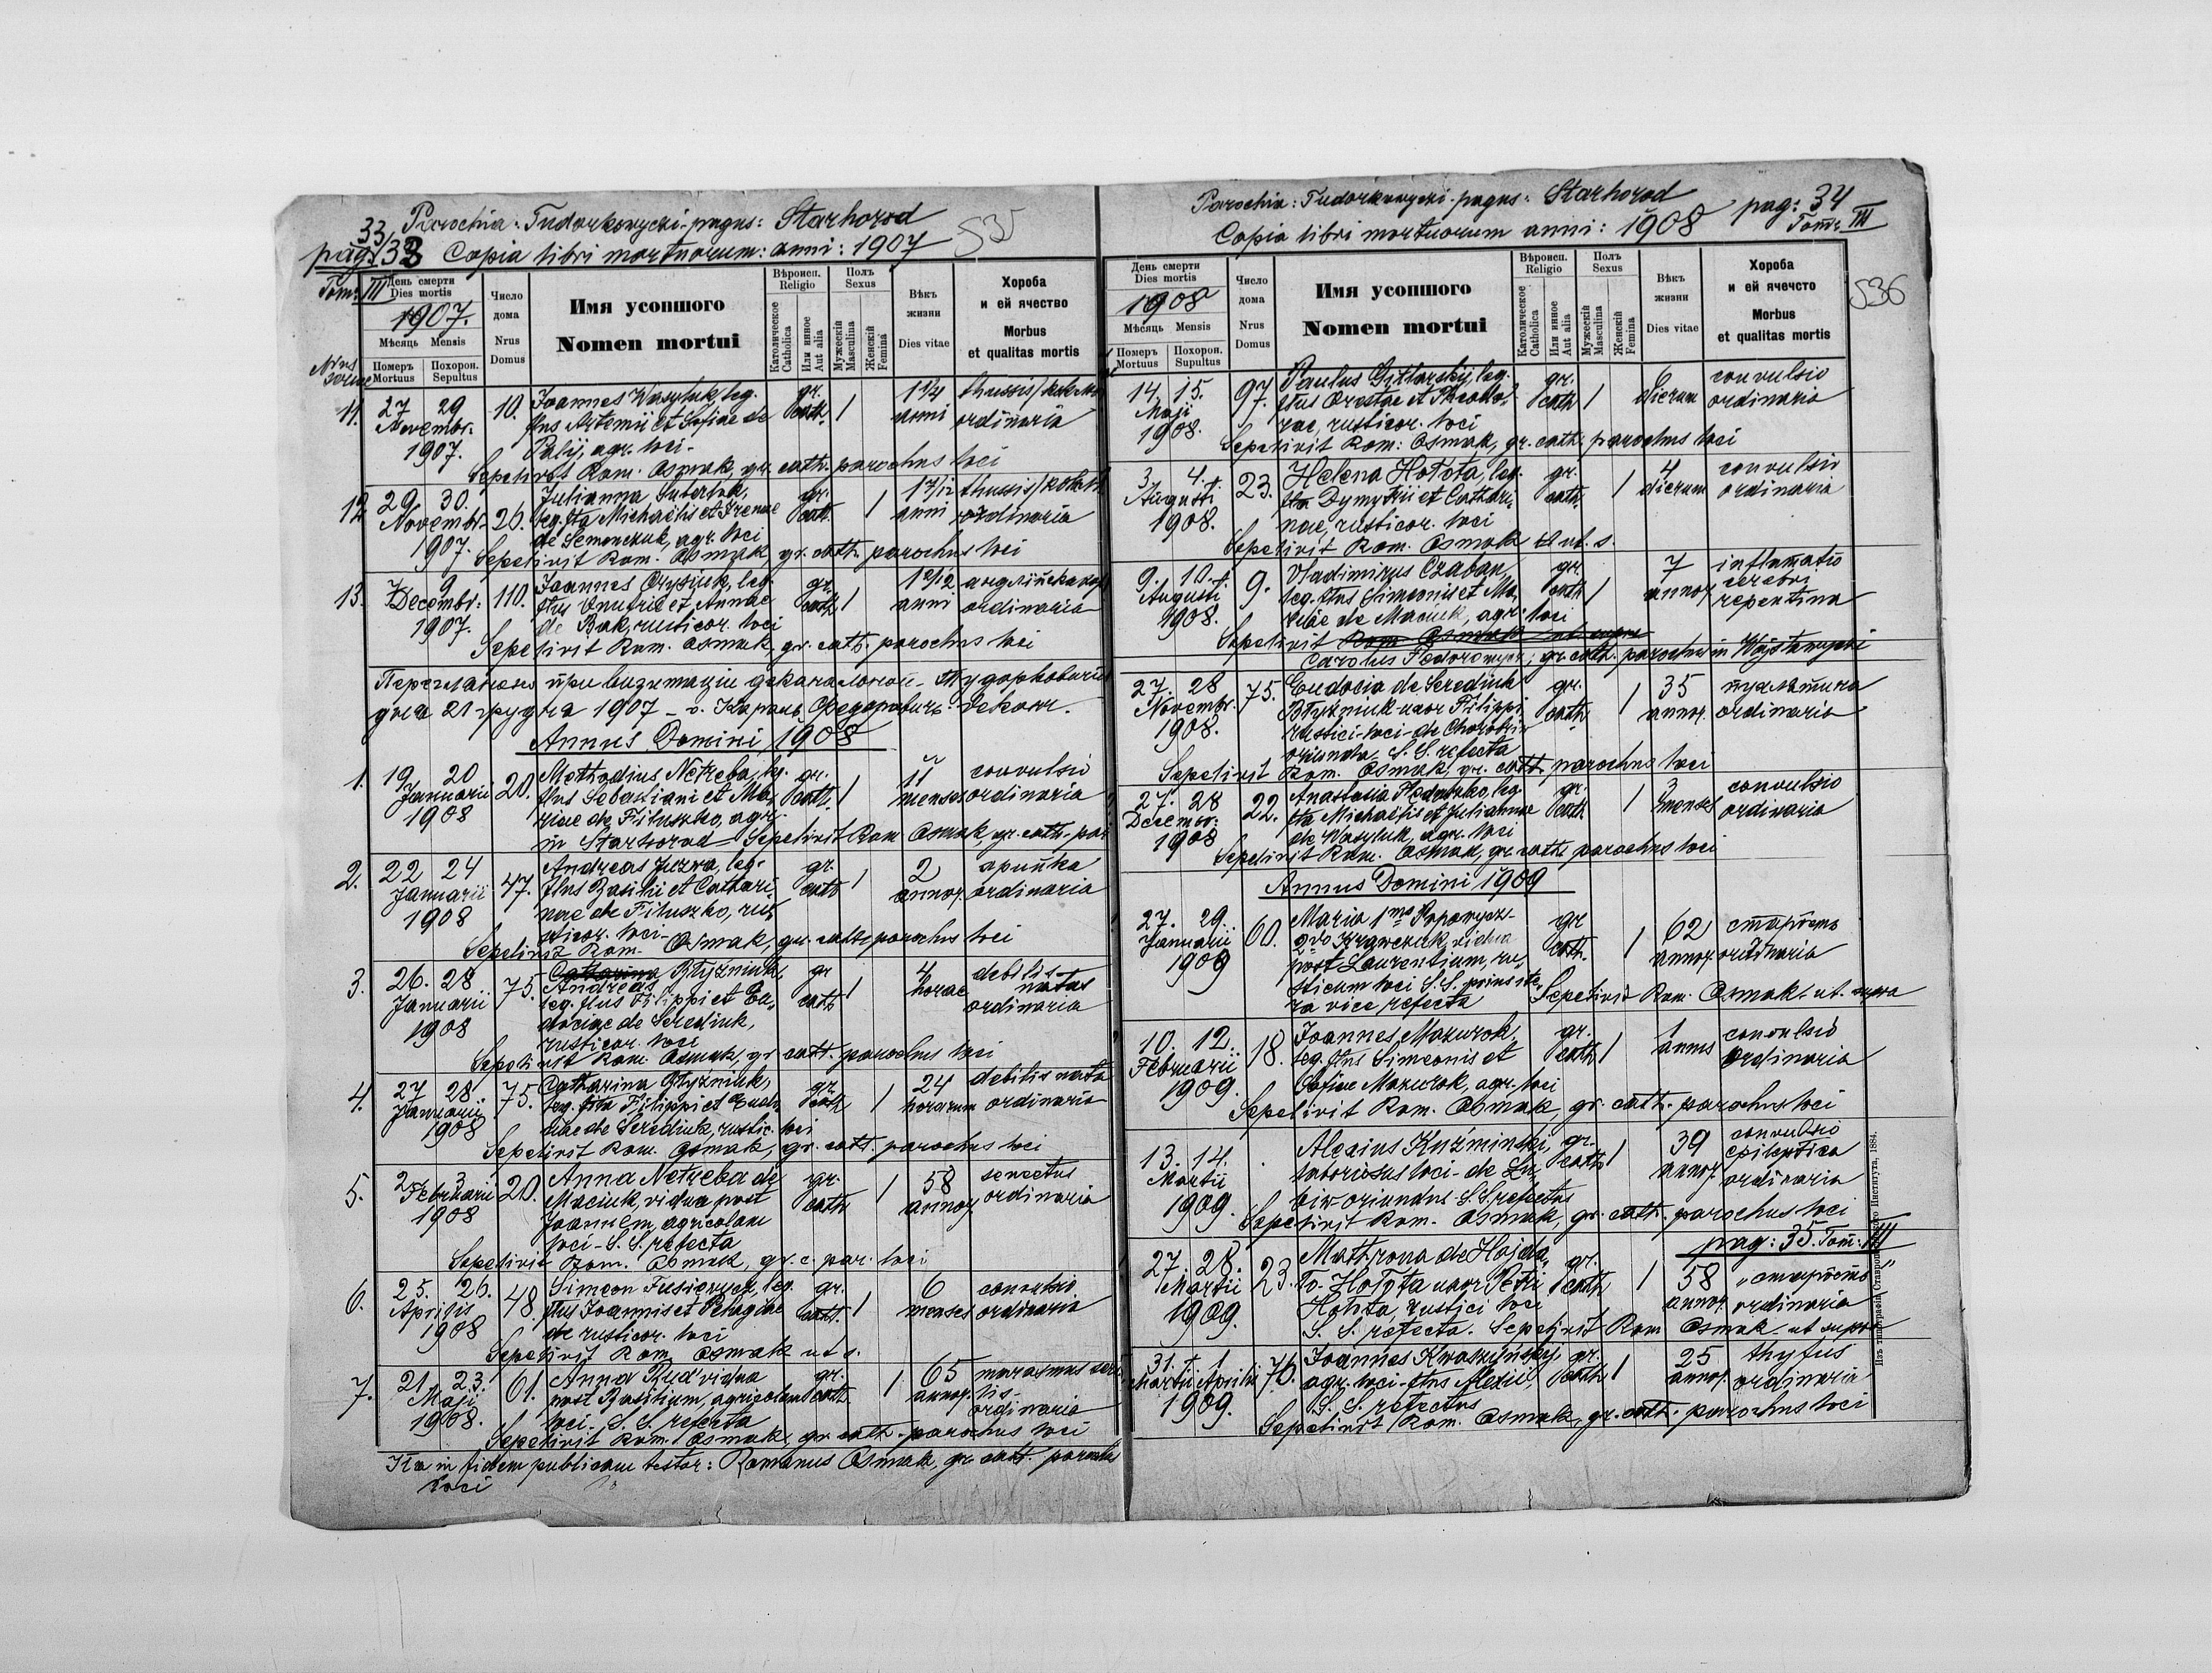 33/ Parochia: Tudorkowycki-pagus: Starhorod
pag: 33 Copia libri mortuorum: anni: 1907 535
Tom: III
День смерти
Dies mortis
1907.
Мѣсяць Mensis
Померъ Mortuus
Похорон. Sepultus
Число дома
Nrus Domus
Имя усопшого
Nomen mortui
Вѣроисп.
Religio
Католическое Catholica
Или инное Aut alia
Полъ
Sexus
Мужескій Masculina
Женскій Femina
Вѣкъ жизни
Dies vitae
Хороба
и ей ячество
Morbus
et qualitas mortis
11. 27 29 Novembr. 1907. 10. Joannes Wasyluk, leg.
flus Artemii et Sofiae de
Palij, agr. loci.
gr. cath. 1 1 1/4 anni thussis ordinaria
Sepelivit Rom. Osmak, gr. cath. parochus loci
12 29 30. Novembr. 1907. 26. Julianna
leg. fta Michaëlis et Irenae
de Semenczuk, agr. loci
gr. cath. 1 1 7/12 anni thussis ordinaria
Sepelivit Rom. Osmak, gr. cath. parochus loci
13. 7 9 Decembr. 1907. 110. Joannes Onysiuk, leg.
flus Onufrii et Annae
de Bak, rusticor. loci
gr. cath 1 anni ordinaria
Sepelivit Rom. Osmak, gr. cath. parochus loci
при визитаціи
дня 21 грудня 1907 – о. Кароль Федоровичь
Annus Domini 1908
1. 19. 20 Januarii 1908 20. Methodius Netreba, leg.
flus Sebastiani et Ma,
riae de Fituszko, agr.
gr. cath. 1 11 menses convulsio ordinaria
in Starhorod – Sepelivit Rom Osmak, gr. cath. par
2. 22 24 Januarii 1908 47. Andreas Juzwa, leg.
flus Basilii et Cathari,
nae de Fituszko, ru,
sticor. loci
gr. cath 1 2 annor. ordinaria
Sepelivit Rom. Osmak, gr. cath. parochus loci
3. 26. 28 Januarii 1908 75. Catharina Błyźniuk,
Andreas
leg. flus Filippi et Eu,
dociae de Serediuk,
rusticor. loci
gr cath 1 4 horae debilis natus ordinaria
Sepelivit Rom. Osmak, gr cath. parochus loci
4. 27 28. Januarii 1908 75. Catharina Błyźniuk,
leg. fta Filippi et Eudo,
ciae de Serediuk, rustic. loci
gr. cath 1 24 horarum debilis nata ordinaria
Sepelivit Rom. Osmak, gr. cath. parochus loci
5. 2 3 Februarii 1908 20. Anna Netreba de
Maciuk, vidua post
Joannem, agricolam
loci – S. S. refecta
gr. cath. 1 58 annor senectus ordinaria
Sepelivit Rom. Osmak, gr. c. par. loci
6. 25. 26. Aprilis 1908 48. Simeon leg.
flus Joannis et Pelagiae
de rusticor. loci
gr. cath. 1 6 menses convulsio ordinaria
Sepelivit Rom Osmak ut s.
7. 21 23. Maji 1908. 61. Anna Rud vidua
post Basilium, agricolam
loci. S. S. refecta
gr. cath. 1 65 annor. marasmus ordinaria
Sepelivit Rom. Osmak, gr cath. parochus loci
Ita in fidem publicam testor: Romanus Osmak, gr. cath. parochus
loci
Parochia: Tudorkowycki-pagus: Starhorod pag: 34
Copia libri mortuorum anni: 1908 Tom: III
536
День смерти
Dies mortis
1908
Мѣсяць Mensis
Померъ Mortuus
Похорон. Sepultus
Число дома
Nrus Domus
Имя усопшого
Nomen mortui
Вѣроисп.
Religio
Католическое Catholica
Или инное Aut alia
Полъ
Sexus
Мужескій Masculina
Женскій Femina
Вѣкъ жизни
Dies vitae
Хороба
и ей ячечсто
Morbus
et qualitas mortis
14. 15. Maji 1908. 97. Paulus leg.
flus Orestae et Theodo,
rae, rusticor. loci
gr. cath 1 6 dierum convulsio ordinaria
Sepelivit Rom: Osmak, gr. cath. parochus loci
3. 4. Augusti 1908. 23. Helena Hołota, leg.
fta Dymytrii et Cathari,
nae, rusticor. loci
gr. cath. 1 4 dierum convulsio ordinaria
Sepelivit Rom. Osmak ut. s.
9. 10. Augusti 1908. 9. Vladimirus Czaban,
leg. flus Simeonis et Ma,
riae de Maciuk, agr. loci
gr. cath 1 7 annor inflamatio cerebri repentina
Sepelivit Rom Osmak ut supra
Carolus Fedorowycz, gr. cath. parochus in Wojsławycki
27. 28 Novembr. 1908. 75. Eudocia de Serediuk
Błyźniuk uxor Filippi
rustici loci – de Chorobriw
oriunda, S. S. refecta
gr. cath. 1 35 annor. ordinaria
Sepelivit Rom. Osmak, gr. cath parochus loci
27. 28 Decembr. 1908 22. Anastasia leg
fta Michaëlis et Juliannae
de Wasyluk, agr. loci
gr. cath 1 3 menses convulsio ordinaria
Sepelivit Rom. Osmak, gr. cath. parochus loci
Annus Domini 1909
27. 29. Januarii 1909 60. Maria 1mo Popowycz-
2do Krawczuk, vidua
post Laurentium, ru,
sticum loci S. S. prius ite,
ra vice refecta
gr cath. 1 62 annor старость ordinaria
Sepelivit Rom. Osmak. ut. supra
10. 12. Februarii 1909. 18. Joannes Mazurok,
leg. flus Simeonis et
Sofiae Mazurok, agr. loci
gr. cath 1 1 annus convulsio ordinaria
Sepelivit Rom. Osmak, gr. cath. parochus loci
13. 14. Martii 1909. Alexius Kuźminski,
laboriosus loci – de
oriundus – S. S. refectus
gr. cath 1 39 annor. convulsio epileptica ordinaria
Sepelivit Rom. Osmak, gr. cath. parochus loci
pag: 35. Tom: III
27. 28. Martii 1909. 23. Mathrona de Hajda,
Hołota uxor Petri
Hołota, rustici loci
gr. cath 1 58 annor. „старость" ordinaria
S. S. refecta. Sepelivit Rom Osmak – ut supra
31. 1 Martii Aprilis 1909. 76. Joannes Kwaszyński,
agr. loci – flus Alexii,
S. S. refectus
gr. cath 1 25 annor. thyfus ordinaria
Sepelivit Rom. Osmak, gr. cath. parochus loci